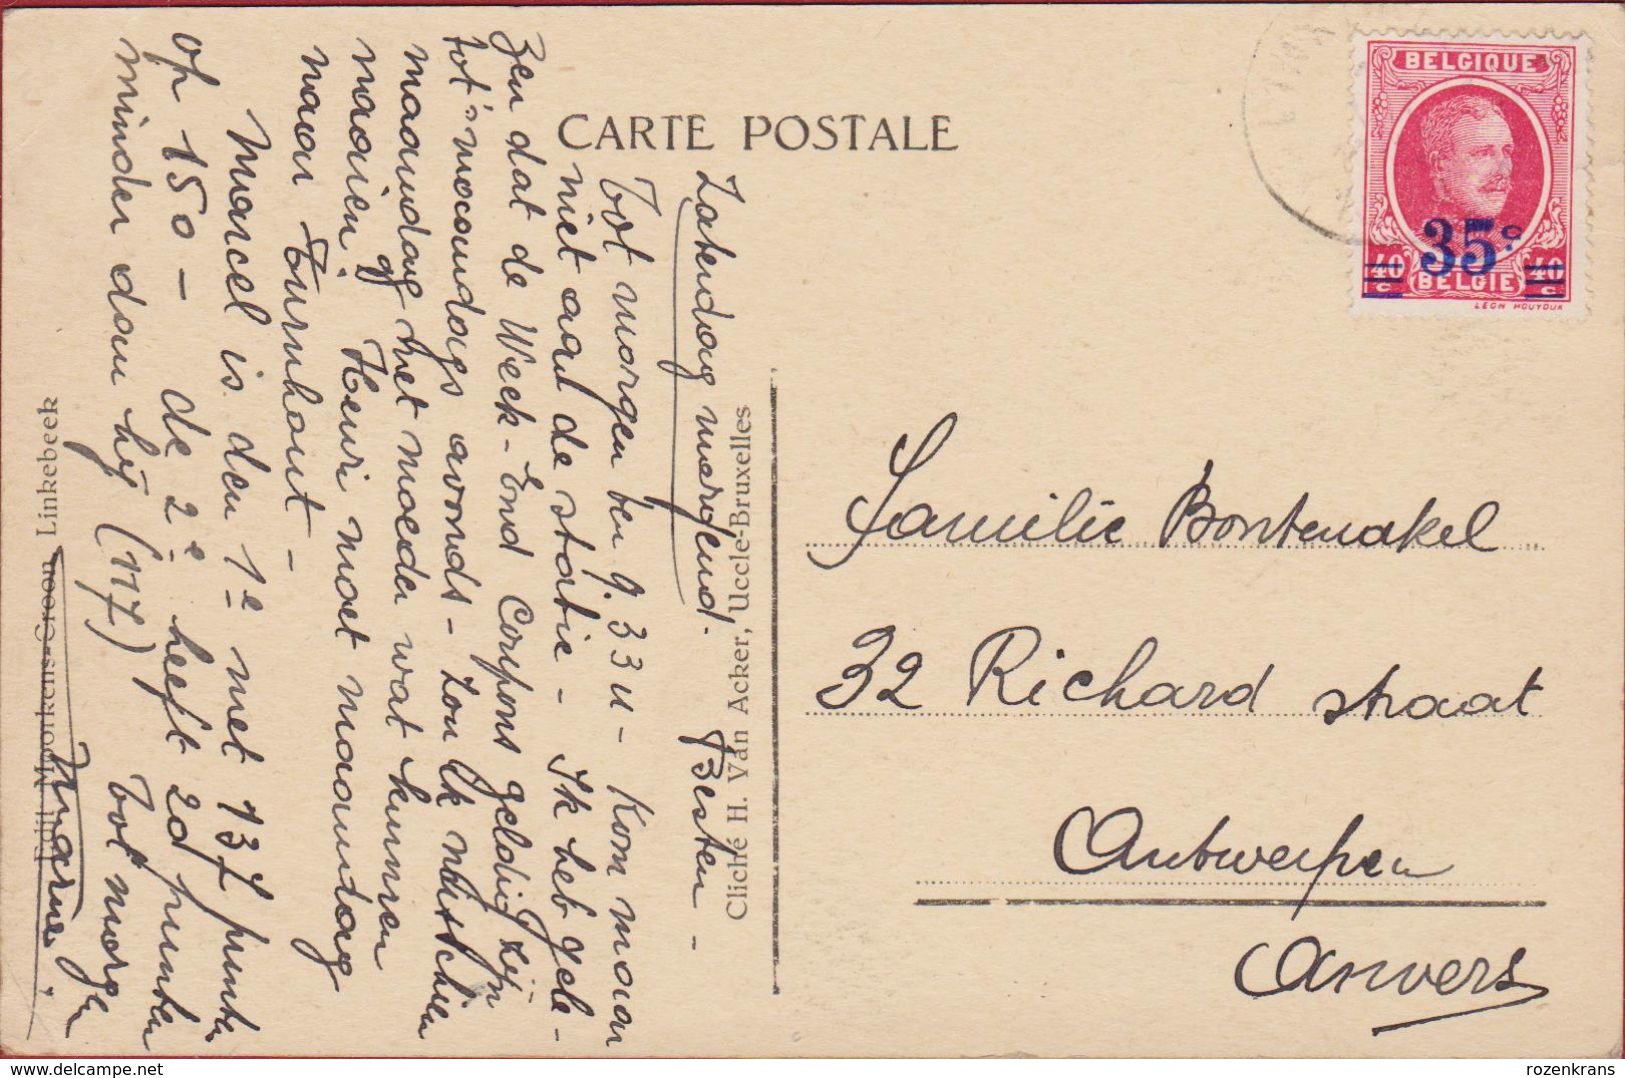 CARTE POSTALE
BELGIQUE
35c
40 c
40 c
BELGIE
LEON HOUYOUX
Zaterdag morgend.
Besten -
Tot morgen ben 9.33 u - Kom maar
niet aan de statie - Ik heb gele-
zen dat de Week-End Coupons geldig zijn
tot 's maandags avonds - Zou ik misschien
maandag met moeder wat kunnen
naaien, Henri moet maandag
naar Tournhout -
Marcel is den 1e met 137 punten
op 150 - de 2e heeft 20 punten
minder dan hij (117) Tot morgen
Marne.
Familie Bontenakel
32 Richard straat
Antwerpen
Anvers
Cliché H. Van Acker, Uccle-Bruxelles
Edit. Moorkens-Croon, Linkebeek
delcampe.net
rozenkrans